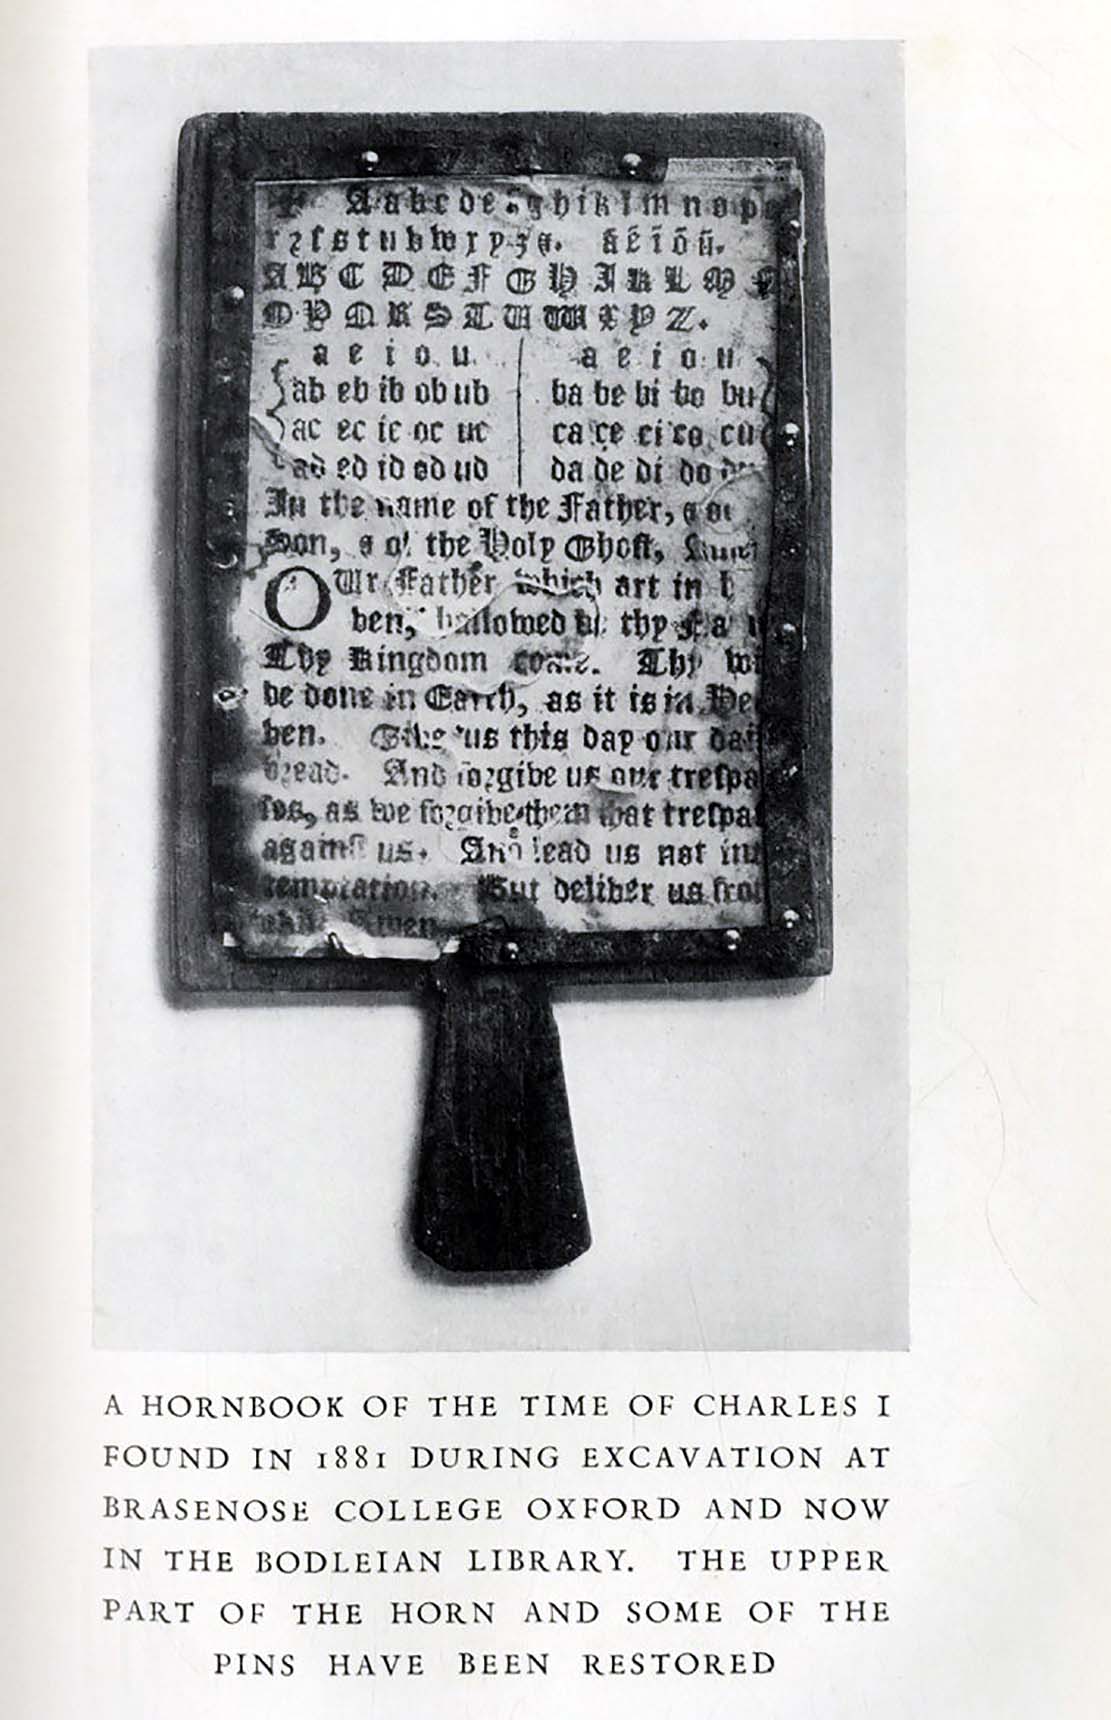 A a b c d e f g h i k l m n o p
r ꝛ ſ s t u v w x y z &. ã ẽ ĩ õ ũ.
A B C D E F G H I K L M N
O P Q R S T U W X Y Z.
a e i o u a e i o u
ab eb ib ob ub ba be bi bo bu
ac ec ic oc uc ca ce ci co cu
ad ed id od ud da de di do du
In the name of the Father, &
Son, & of the Holy Ghoſt,
OUr Father which art in
ven, hallowed be thy
Thy Kingdom come. Thy
be done in Earth, as it is in Hea
ven. Give us this day our dai
bꝛead. And foꝛgive us our treſpaſ
ſes, as we foꝛgive them that treſpaſ
againſt us. And lead us not int
temptation. But deliver us from
Amen
A HORNBOOK OF THE TIME OF CHARLES I
FOUND IN 1881 DURING EXCAVATION AT
BRASENOSE COLLEGE OXFORD AND NOW
IN THE BODLEIAN LIBRARY. THE UPPER
PART OF THE HORN AND SOME OF THE
PINS HAVE BEEN RESTORED